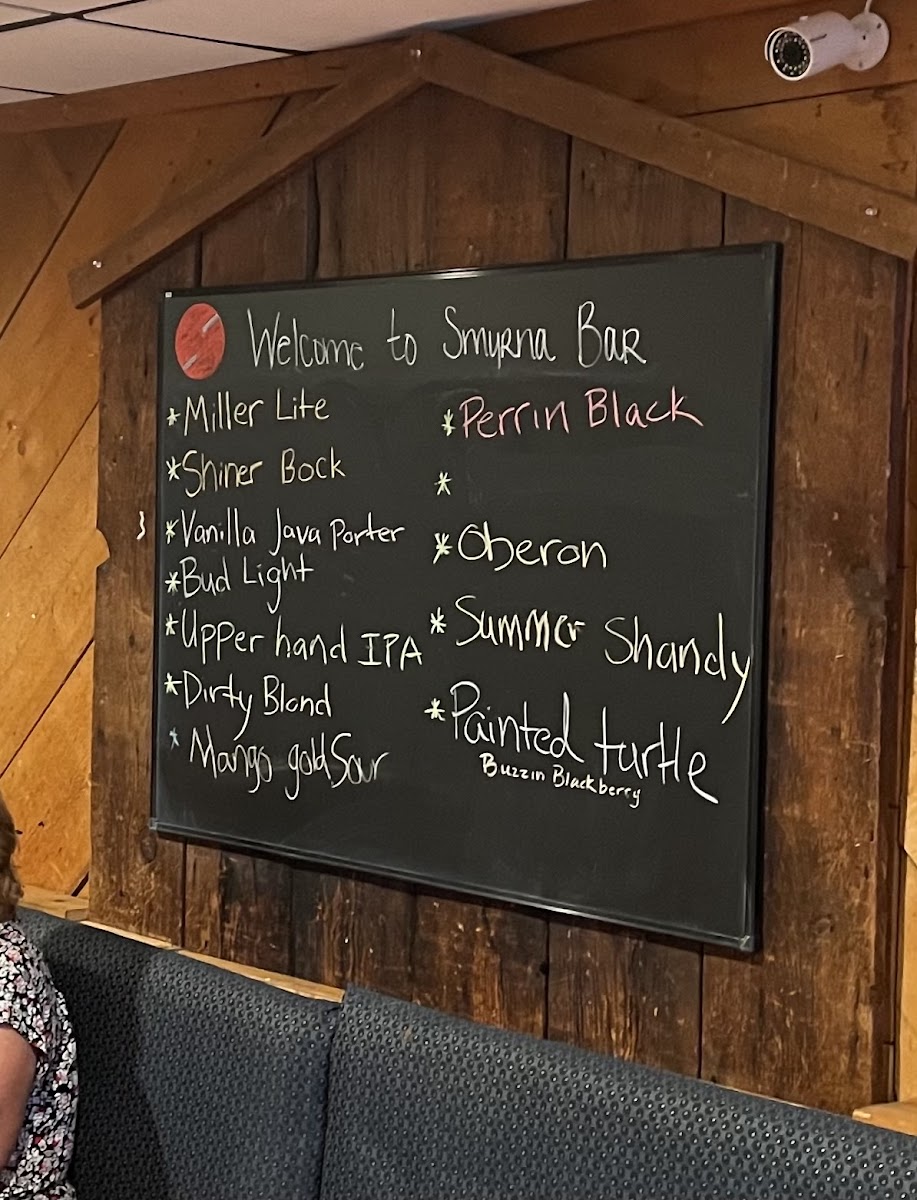 Welcome to Smyrna Bar
*Miller Lite
*Shiner Bock
*Vanilla Java Porter
*Bud Light
*Upper hand IPA
*Dirty Blond
*Mango gold Sour
*Perrin Black
*
*Oberon
*Summer Shandy
*Painted turtle
Buzzin Blackberry